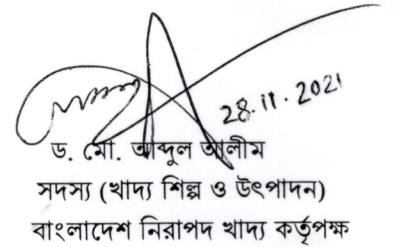 28.11.2021
ড. মো. আব্দুল আলীম
সদস্য (খাদ্য শিল্প ও উৎপাদন)
বাংলাদেশ নিরাপদ খাদ্য কর্তৃপক্ষ